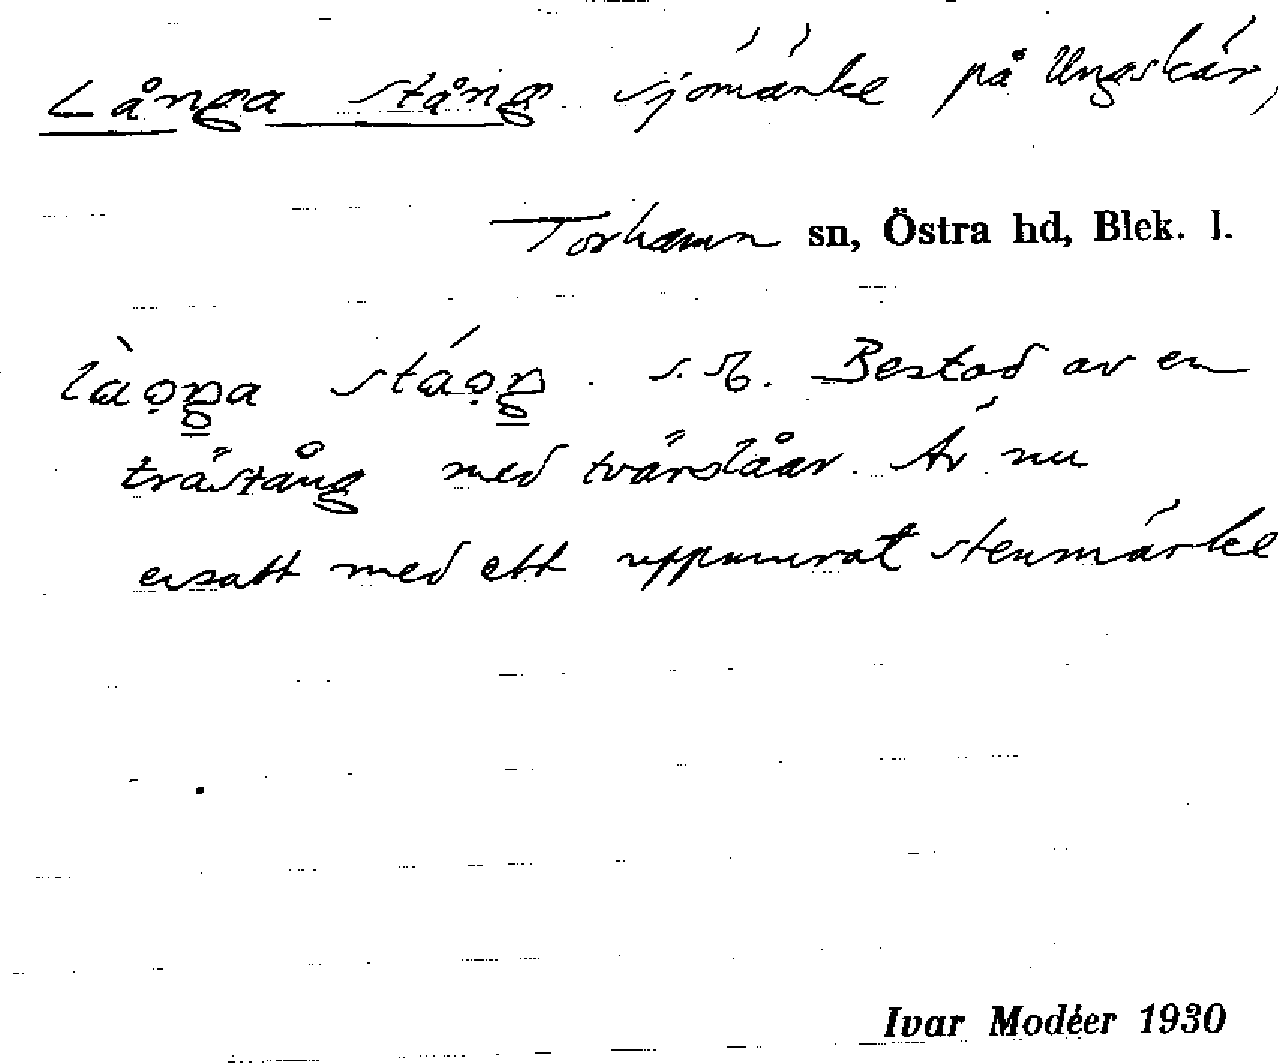 Långa stång sjömärke på Ungskär,
Torhamn sn, Östra hd, Blek. l.
Bestod av en
trästång med tvärslåar. Är nu
ersatt med ett uppmurat stenmärke
Ivar Modéer 1930